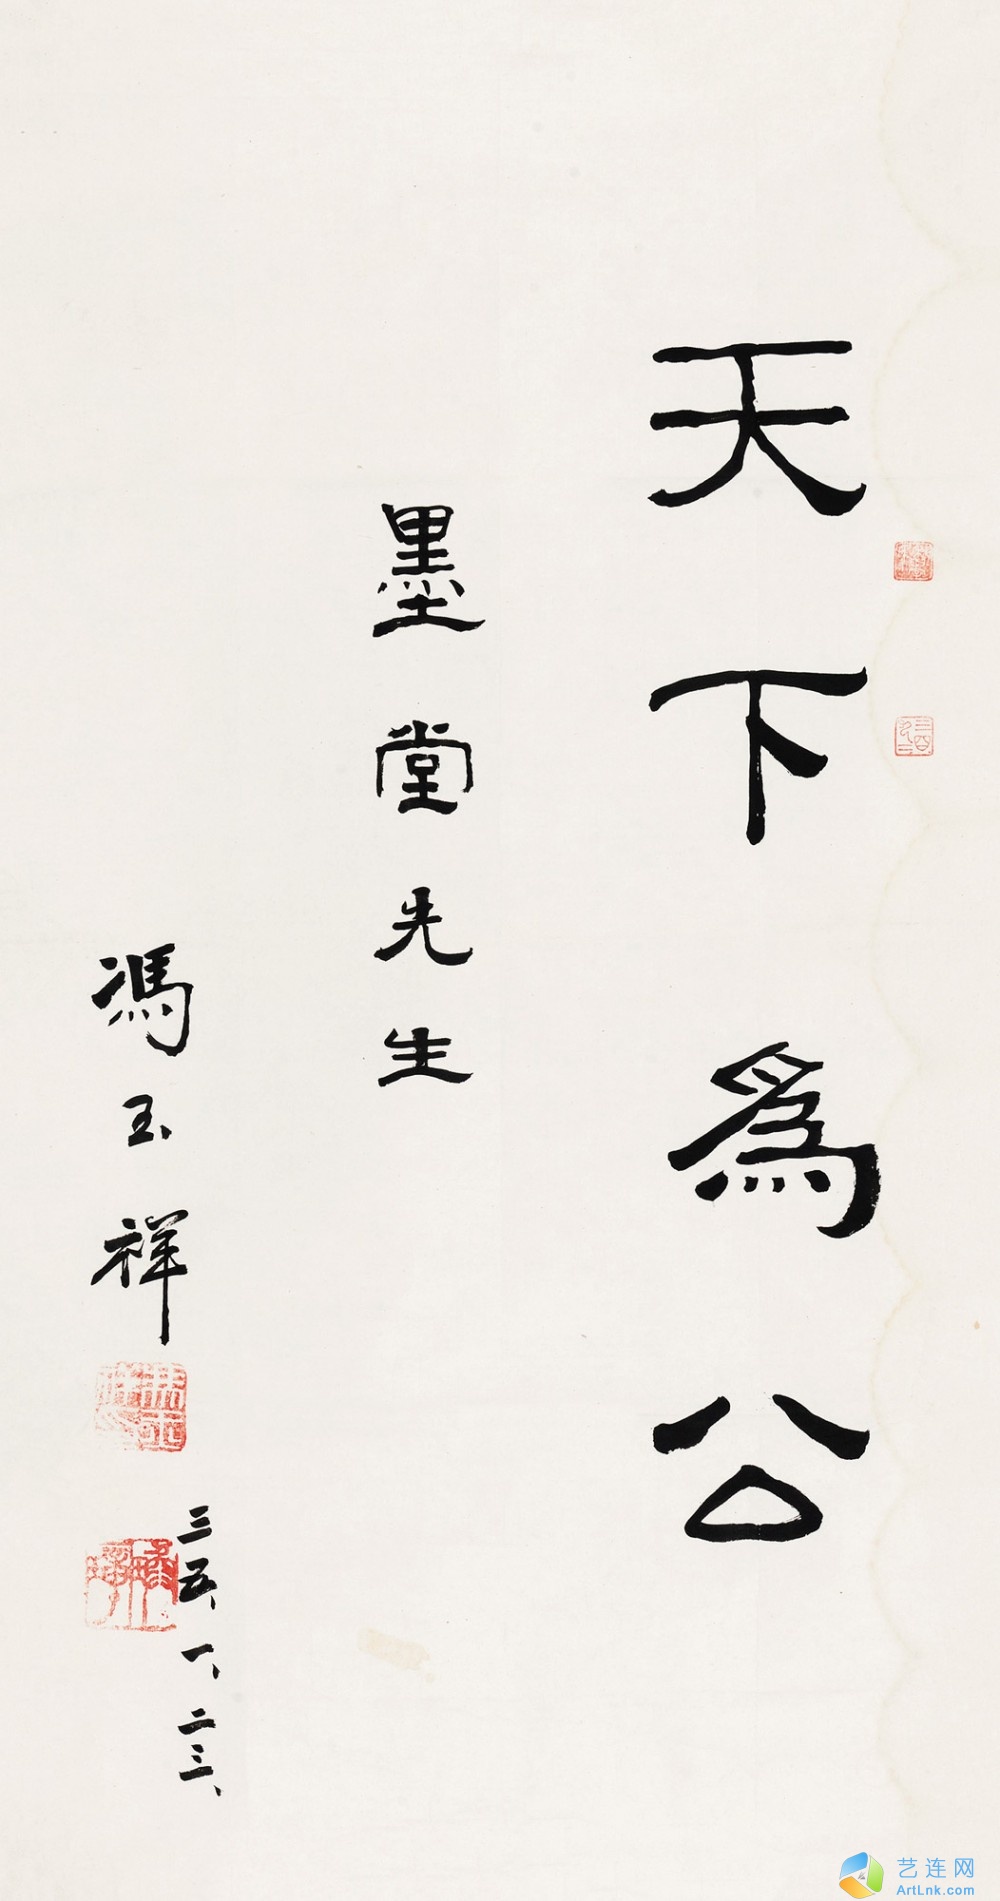 天下為公
墨堂先生
馮玉祥
三五、一、二三、
艺连网
ArtLnk.com